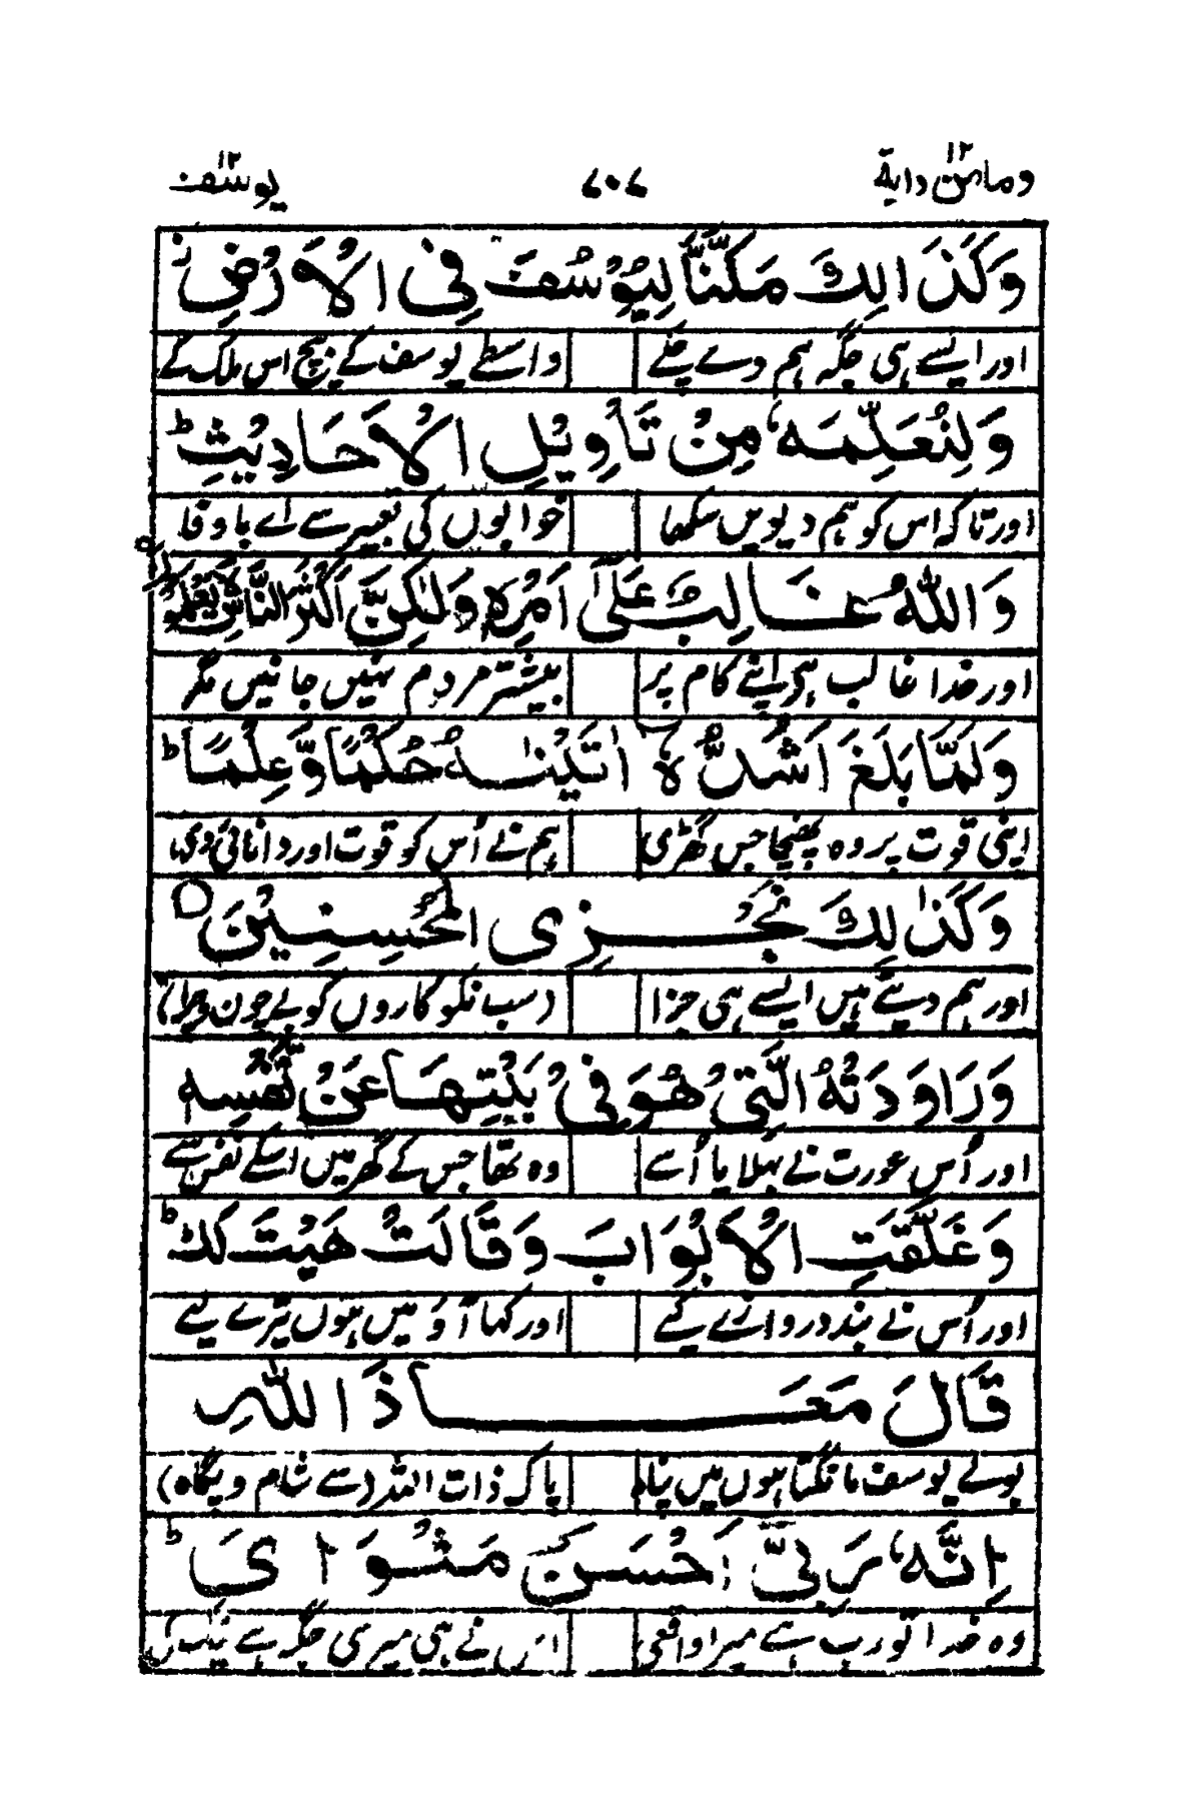 وما من دابة ١٢ ٧٠٧ یوسف ١٢
وَكَذَالِكَ مَكَّنَّا لِيُوْسُفَ فِى الْاَرْضِ ز
اور ایسے ہی جگہ ہم دے چلے واسطے یوسف کے بیچ اس ملک کے
وَلِنُعَلِّمَهٗ مِنْ تَاْوِيْلِ الْاَحَادِيْثِ ط
اور تاکہ اس کو ہم دیویں سکھا خوابوں کی تعبیر سے اے باوفا
وَاللّٰهُ غَالِبٌ عَلٰٓى اَمْرِهٖ وَلٰكِنَّ اَكْثَرَ النَّاسِ لَا يَعْلَمُوْنَ
اور خدا غالب ہے اپنے کام پر بیشتر مردم نہیں جانیں مگر
وَلَمَّا بَلَغَ اَشُدَّهٗٓ اٰتَيْنٰهُ حُكْمًا وَّعِلْمًا ط
اپنی قوت پر وہ پہنچا جس گھڑی ہم نے اُس کو قوت اور دانائی دی
وَكَذٰلِكَ نَجْزِى الْمُحْسِنِيْنَ ○
اور ہم دیتے ہیں ایسے ہی جزا (سب نکو کاروں کو بے چون و چرا)
وَرَاوَدَتْهُ الَّتِىْ هُوَ فِىْ بَيْتِهَا عَنْ نَّفْسِهٖ
اور اُس عورت نے بہلایا اُسے وہ تھا جس کے گھر میں اسکے نفس سے
وَغَلَّقَتِ الْاَبْوَابَ وَقَالَتْ هَيْتَ لَكَ ط
اور اُس نے بند دروازے کیے اور کہا آؤ میں ہوں تیرے لیے
قَالَ مَعَاذَ اللّٰهِ
بولے یوسف مانگتا ہوں میں پناہ پاک ذات اللہ (سے شام و پگاہ)
اِنَّهٗ رَبِّىْٓ اَحْسَنَ مَثْوَاىَ ط
وہ خدا تو رب ہے میرا واقعی اس نے ہی میری جگہ ہے نیک کی